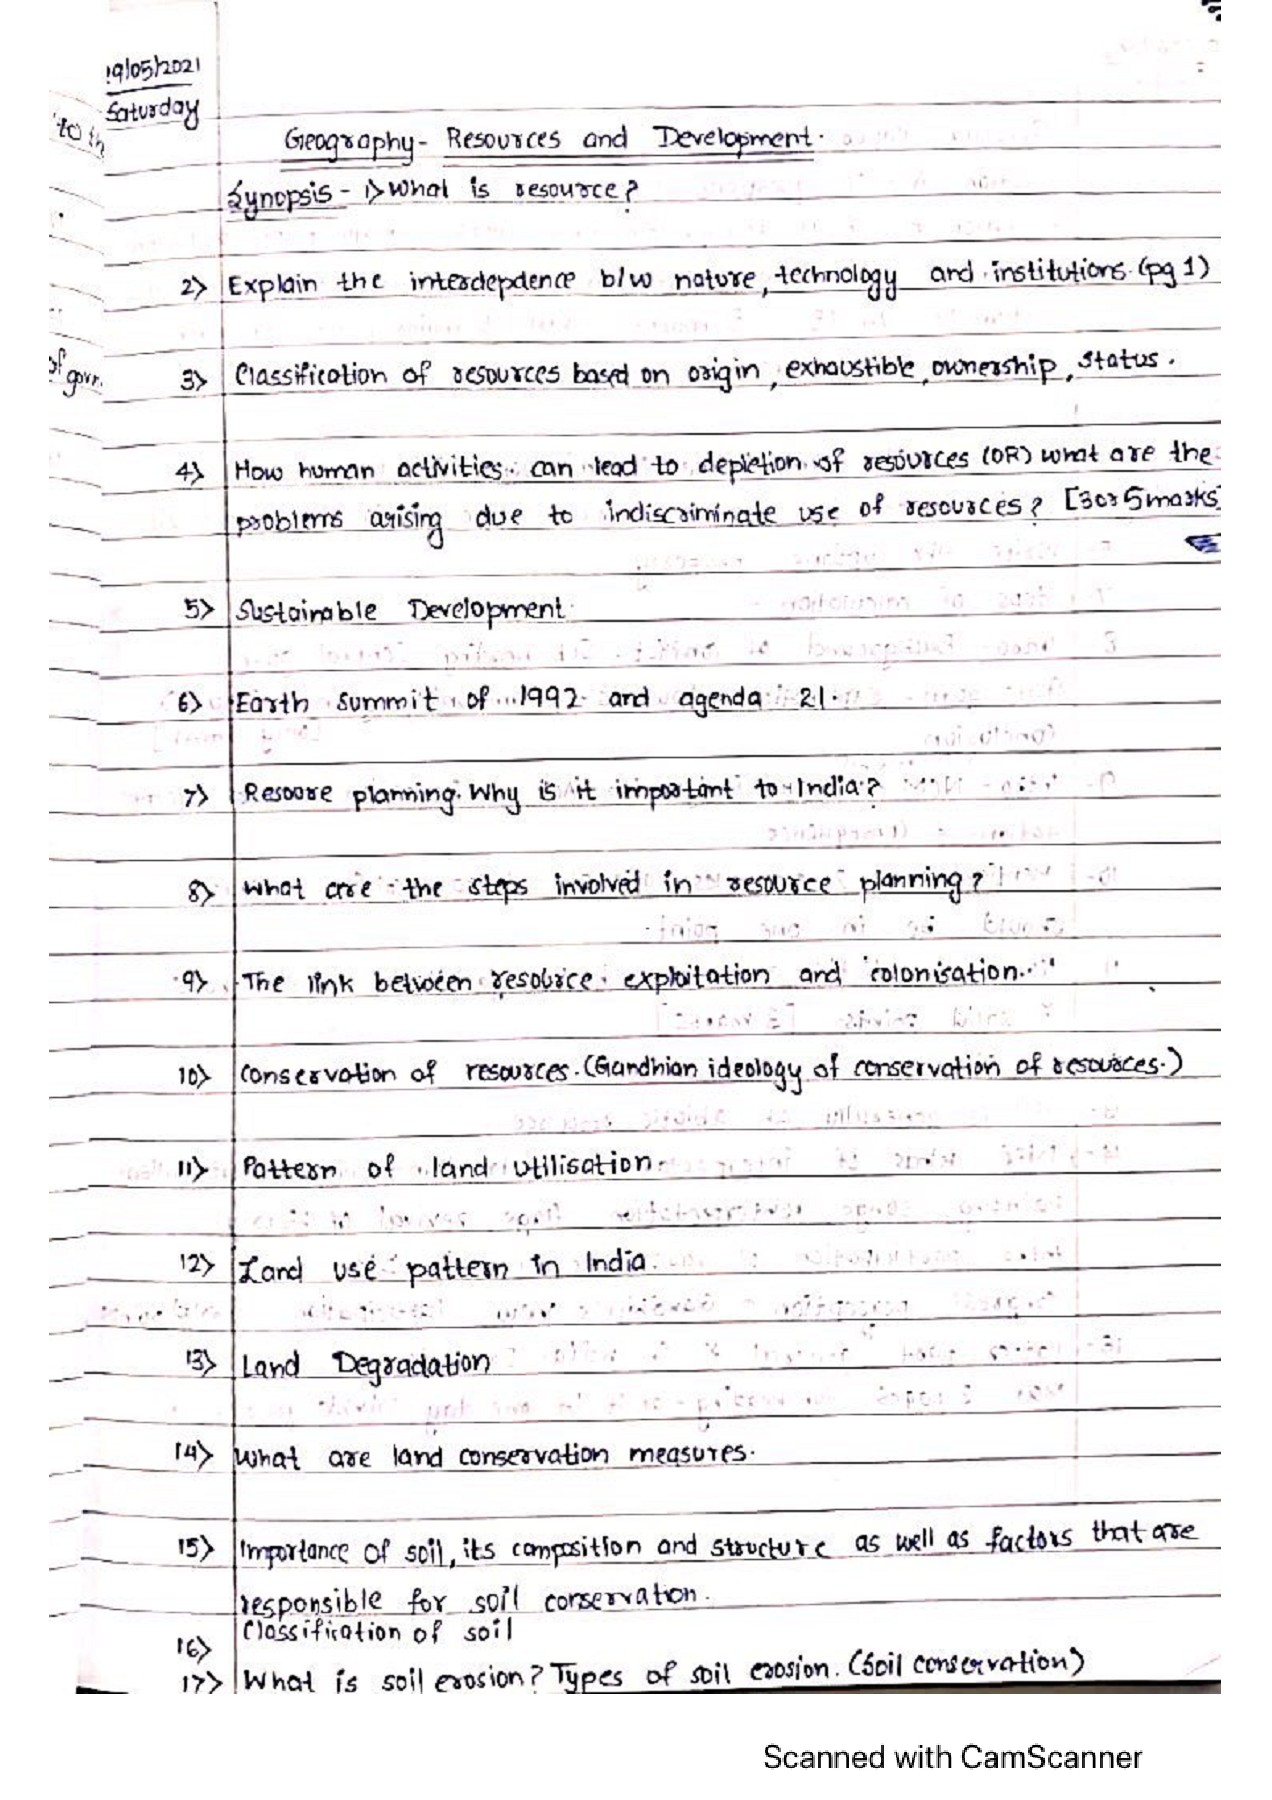 19/05/2021
Saturday
to th
Geography- Resources and Development.
Synopsis - 1> What is resource?
2> Explain the interdepdence b/w nature, technology and institutions. (pg 1)
of govr.
3> Classification of resources based on origin, exhaustible, ownership, status.
4> How human activities can lead to depletion of resources (OR) what are the
problems arising due to indiscriminate use of resources? [3or 5marks]
5> Sustainable Development
6> Earth summit of 1992 and agenda 21.
7> Resoore planning. Why is it important to India?
8> What are the steps involved in resource planning?
9> The link between resource exploitation and colonisation.
10> Conservation of resources. (Gandhian ideology of conservation of resources.)
11> Pattern of land utilisation.
12> Land use pattern in India.
13> Land Degradation
14> What are land conservation measures.
15> Importance of soil, its composition and structure as well as factors that are
responsible for soil conservation.
16> Classification of soil
17> What is soil erosion? Types of soil erosion. (Soil conservation)
Scanned with CamScanner